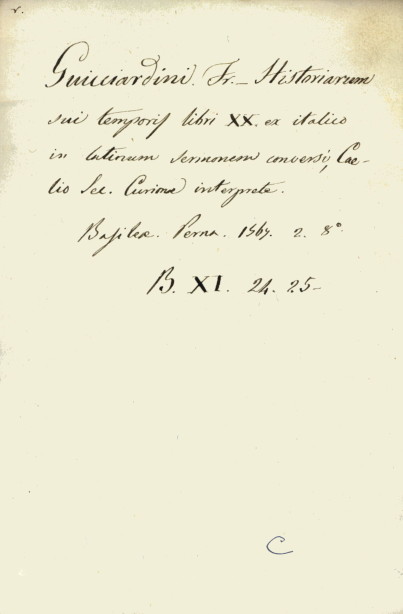 v.
Guicciardini. Fr. – Historiarum
sui temporis libri XX. ex italico
in latinum sermonem conversi, Cae-
lio Sec. Curione interprete.
Basileæ. Perna. 1567. 2. 8°.
B. XI. 24. 25–
C